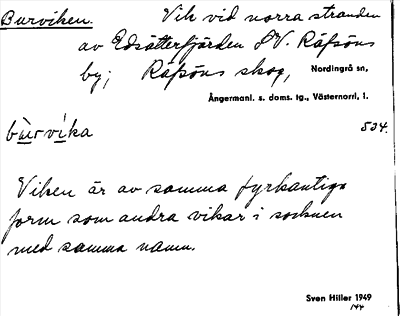 Burviken. Vik vid norra stranden
av Edsätterfjärden SV. Räfsöns
by; Räfsöns skog, Nordingrå sn,
Ångermanl. s. doms. tg., Västernorrl. l.
bùrvìka 534.
Viken är av samma fyrkantiga
form som andra vikar i socknen
med samma namn.
Sven Hiller 1949
144